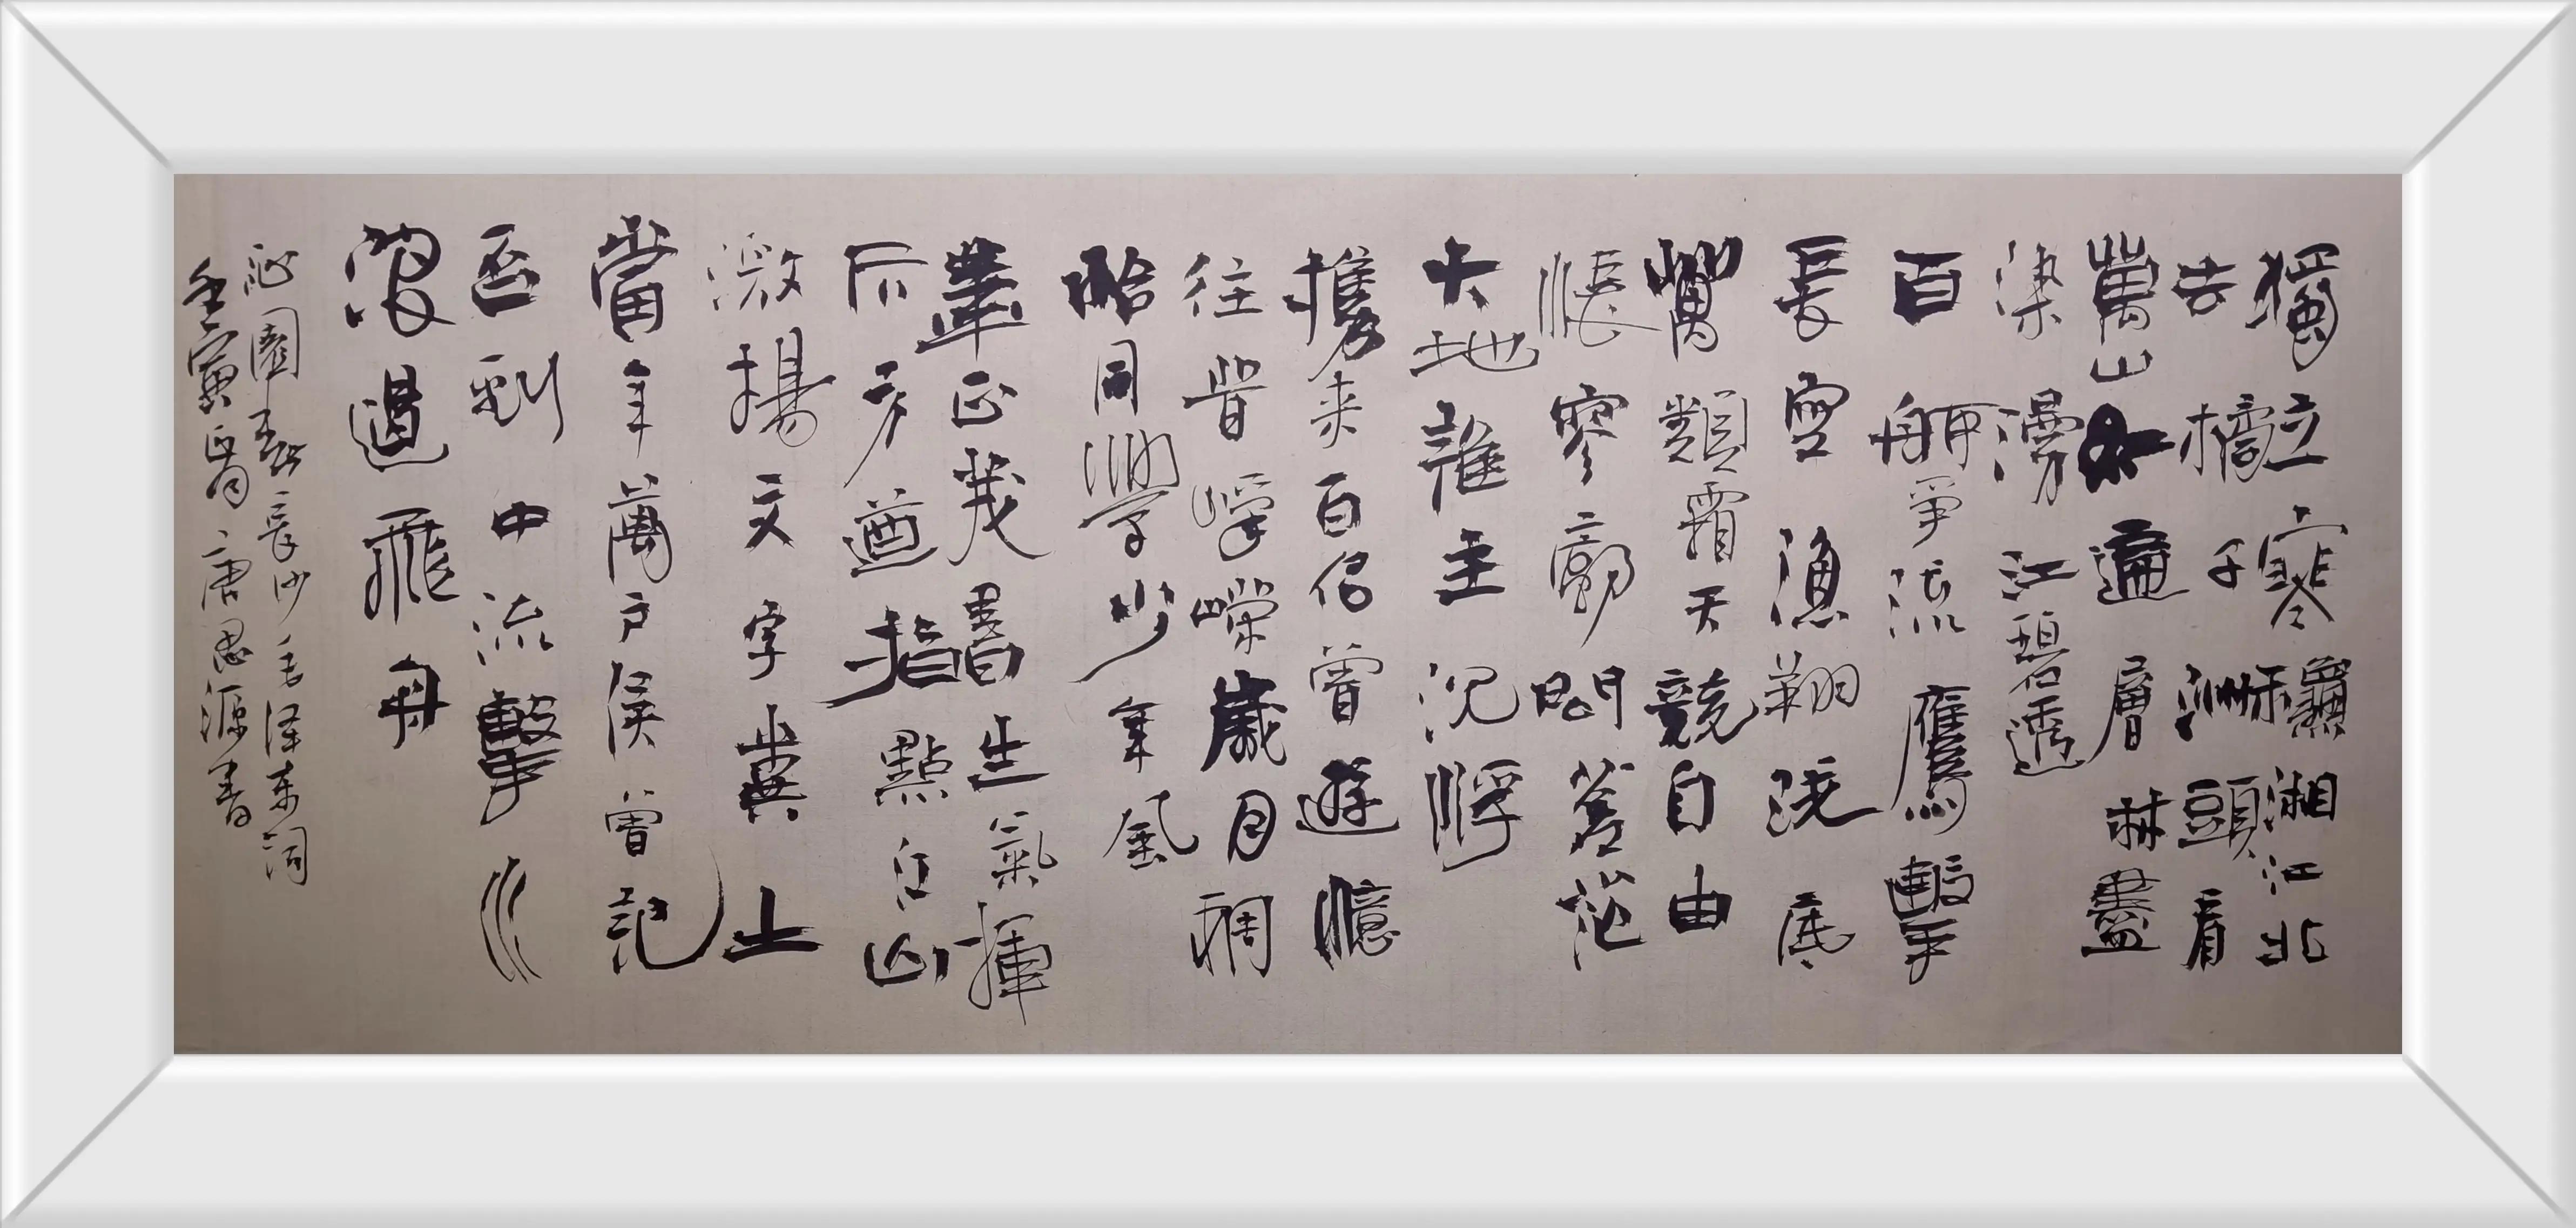 獨立寒龝湘江北
去橘子洲頭看
萬山紅遍層林盡
染漫江碧透
百舸爭流鷹擊
長空漁翔淺底
萬類霜天競自由
悵寥廓問蒼茫
大地誰主沈浮
攜来百侣曾遊憶
往昔崢嶸歲月稠
恰同學少年風
華正茂書生氣揮
斥方遒指點江山
激揚文字糞土
當年萬户侯曾記
否到中流擊水
浪遏飛舟
沁園春長沙毛泽东詞
壬寅唐思源書